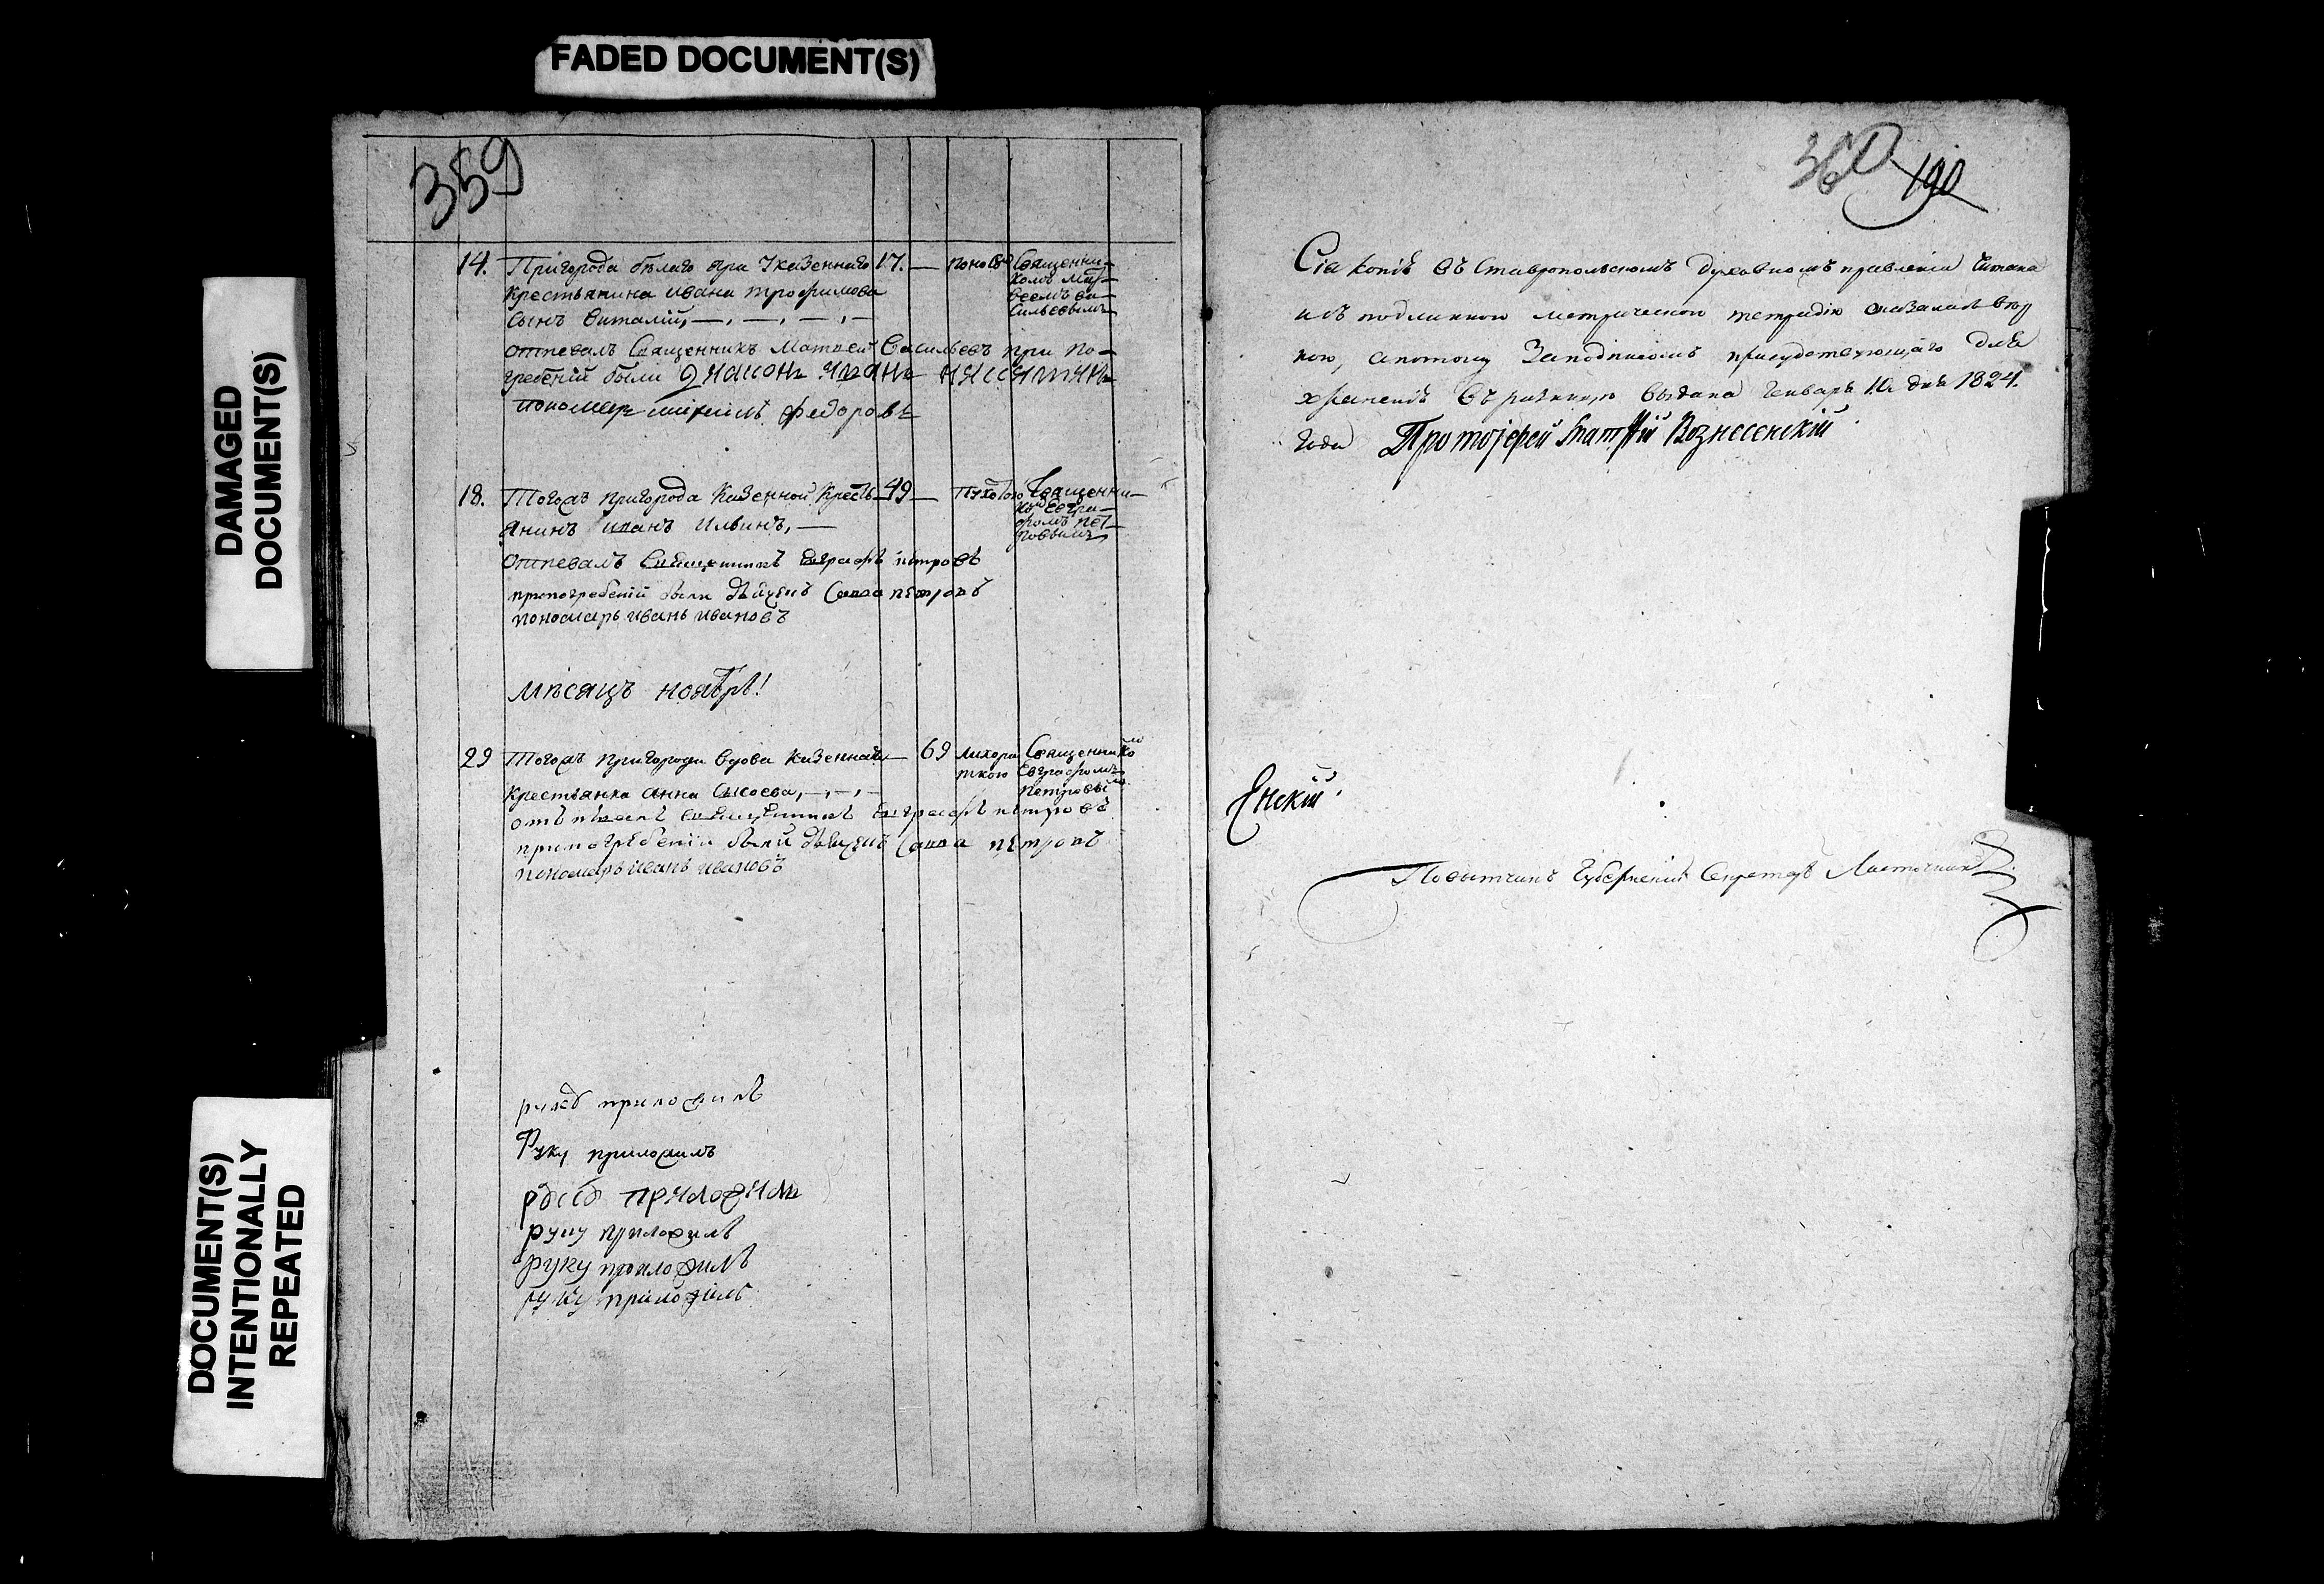 FADED DOCUMENT(S)
DAMAGED
DOCUMENT(S)
DOCUMENT(S)
INTENTIONALLY
REPEATED
359
14. Пригорода белаго яра Указеннаго 17. — поносо Священни-
крестьянина ивана трофимова комъ Мат-
сынъ виталій, —, —, —, — веемъ ва-
сильевымъ
отпевалъ Священникъ Матвей Васильевъ при по-
гребеній были диаконъ иванъ
пономарь федоровъ
18. Тогожъ пригорода казенной Кресть- 49 — Священни-
янинъ иванъ ильинъ, — комъ Евгра-
фомъ пет-
ровымъ
отпевалъ Священникъ Евграфъ петровъ
припогребеній были дьячекъ Савва петровъ
пономарь иванъ ивановъ
мѣсяцъ ноябрь!
29 Тогожъ пригорода вдова казенная — 69 лихора Священнико
ткою Евграфомъ
крестьянка анна сысоева, —, —, — петровы
отпевалъ священникъ Евграфъ петровъ
припогребеніи были дьячекъ Савва петровъ
пономарь иванъ ивановъ
руку приложилъ
Руку приложилъ
руку приложилъ
руку приложилъ
руку приложилъ
руку приложилъ
360 190
Сія копія въ Ставропольскомъ духовномъ правленіи читана
и съ подлинною метрическою тетрадью оказалась вѣр
ною, апотому Заподписомъ присудствующаго для
храненія въ ризницу выдана Генваря 10 дня 1824.
года Протоіерей Вознесенскій
Енскій.
Повытчикъ Губернскій Секретарь Ласточкинъ